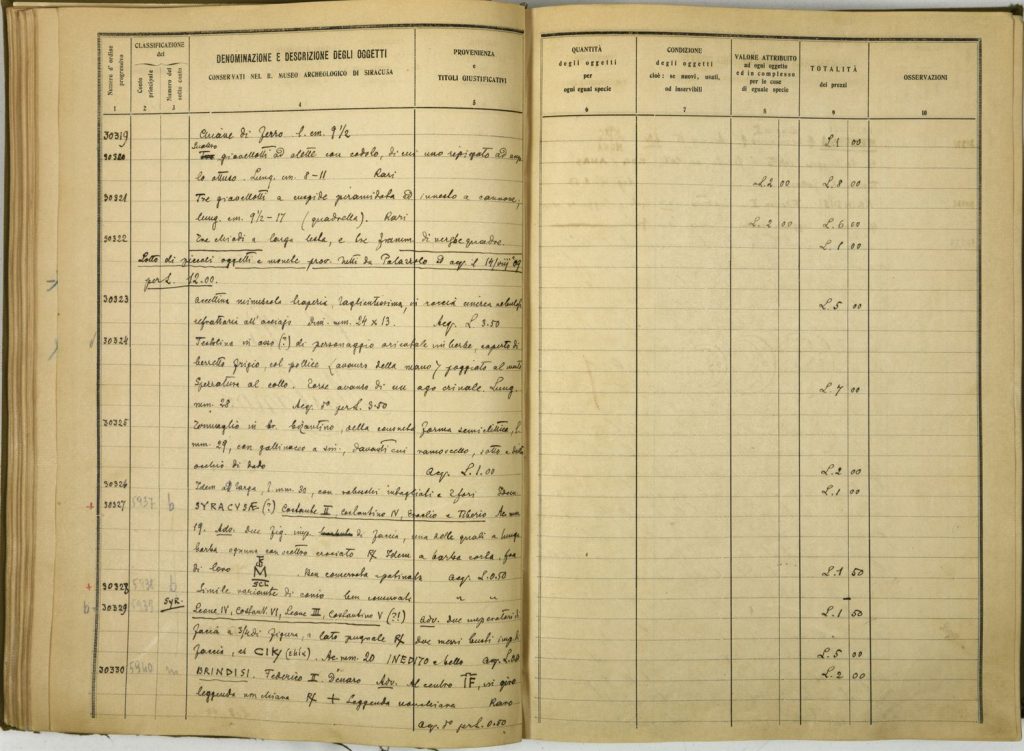 Numero d'ordine progressivo
CLASSIFICAZIONE
del
Conto principale
Numero del sotto conto
DENOMINAZIONE E DESCRIZIONE DEGLI OGGETTI
CONSERVATI NEL R. MUSEO ARCHEOLOGICO DI SIRACUSA
PROVENIENZA
e
TITOLI GIUSTIFICATIVI
QUANTITÀ
degli oggetti
per
ogni egual specie
CONDIZIONE
degli oggetti
cioè: se nuovi, usati,
od inservibili
VALORE ATTRIBUITO
ad ogni oggetto
ed in complesso
per le cose
di eguale specie
TOTALITÀ
dei prezzi
OSSERVAZIONI
1 2 3 4 5 6 7 8 9 10
30319 di ferro l. cm. 9 1/2 L. 1 00
30320 giavellotti ad alette con codolo, di cui uno ripiegato ad
lo ottuso. Lung. cm. 8-11 Rari L. 2 00 L. 8 00
30321 Tre giavellotti a cuspide piramidata ed innesto a cannone,
lung. cm. 9 1/2-17 (quadrella). Rari L. 2 00 L. 6 00
30322 Tre chiodi a larga testa, e tre framm. di verghe quadre. L. 1 00
Lotto di piccoli oggetti e monete prov. tutti da Palazzolo ed acq. l. 14/VIII 09
per L. 12.00.
30323 accettina minuscola tagliantissima, in roccia
refrattaria all'acciajo Dim. mm. 24 x 13. Acq. L. 3.50 L. 5 00
30324 Testolina in osso (?) di personaggio orientale imberbe, coperto di
berretto frigio, col pollice (avanzo della mano) poggiato al mento
Spezzatura al collo. Forse avanzo di un ago crinale. Lung.
mm. 28. Acq. do per L. 3.50 L. 7 00
30325 in br. bizantino, della consueta forma semiellittica, l.
mm. 29, con gallinaccio a sin., davanti cui ramoscello, sotto e
occhio di dado Acq. L. 1.00 L. 2 00
30326 Idem larga, l. mm. 30, con intagliati e 2 fori Idem L. 1 00
+ 30327 5937 b SYRACUSÆ (?) Costante II, Costantino IV, Eraclio e Tiberio Ae mm
19. Adv. Due fig. imp. di faccia, una delle quali a lunga
barba ognuna con scettro crociato R/ Idem a barba corta, fra
di loro M SCL Ben conservata e patinata acq. L. 0.50 L. 1 50
+ 30328 5938 b Simile variante di conio ben conservata " " L. 1 50
30329 5939 SYR. Leone IV, Costant. VI, Leone III, Costantino V (?!) adv. due imperatori di
faccia a 3/4 di figura, a lato pugnale R/ due mezzi busti imp. di
faccia, et CIKЧ Ae. mm. 20 INEDITO e bello acq. L. L. 5 00
30330 5940 m BRINDISI. Federico II Denaro Adv. Al centro IF, in giro
leggenda non chiara R/ + Leggenda non chiara Raro L. 2 00
acq. do per L. 0.50